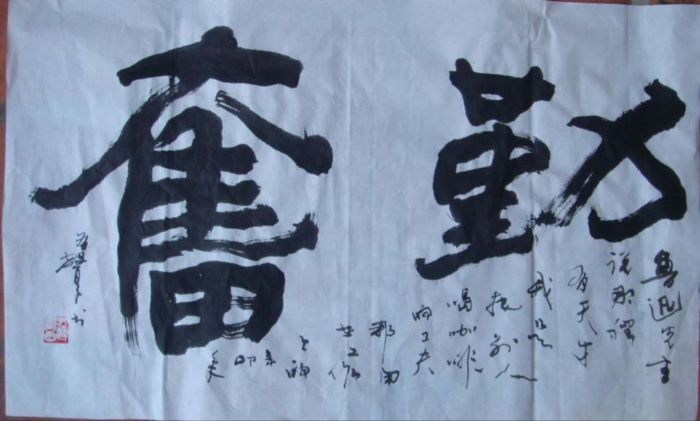 勤奮
鲁迅先生
说那裡
有天才
我是
把别人
喝咖啡
的工夫
都用
在工作
上的
辛
卯
书